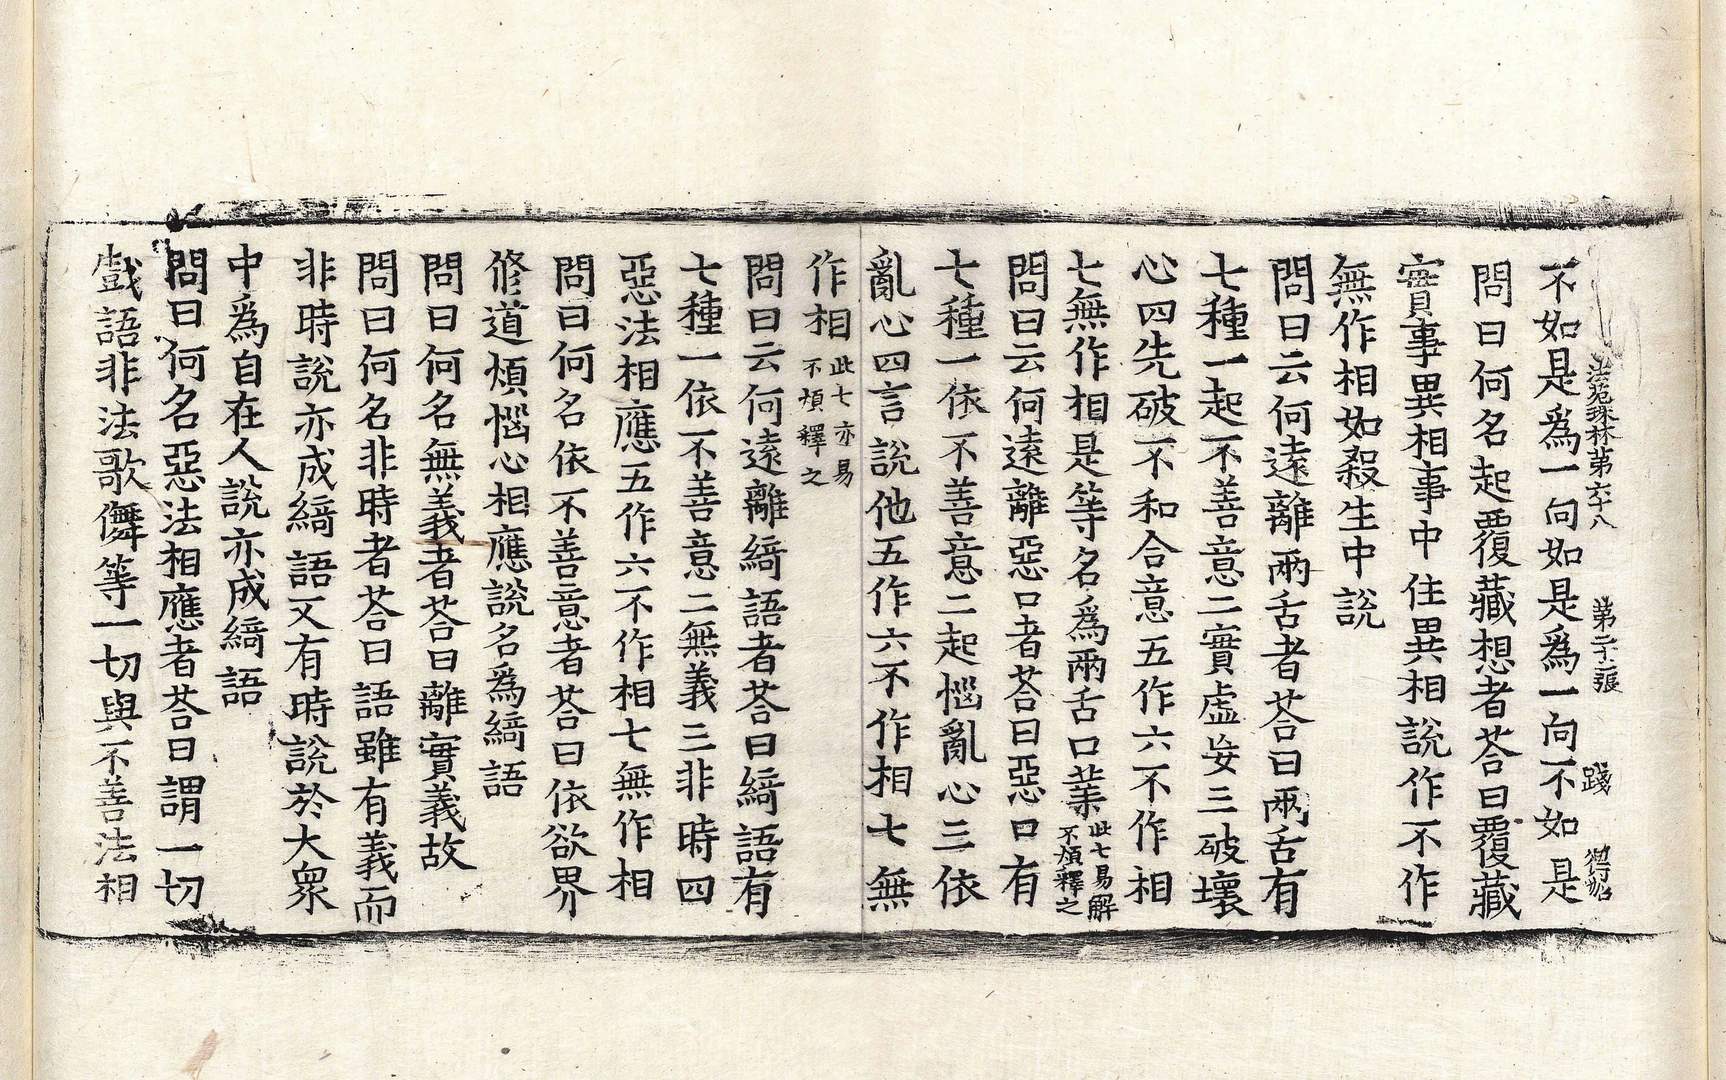 法苑珠林第六十八 第二十張 踐
不如是爲一向如是爲一向不如是
問曰何名起覆藏想者荅曰覆藏
實事異相事中住異相說作不作
無作相如殺生中說
問曰云何遠離兩舌者荅曰兩舌有
七種一起不善意二實虛妄三破壞
心四先破不和合意五作六不作相
七無作相是等名爲兩舌口業此七易解不煩釋之
問曰云何遠離惡口者荅曰惡口有
七種一依不善意二起惱亂心三依
亂心四言說他五作六不作相七無
作相此七亦易不煩釋之
問曰云何遠離綺語者荅曰綺語有
七種一依不善意二無義三非時四
惡法相應五作六不作相七無作相
問曰何名依不善意者荅曰依欲界
修道煩惱心相應說名爲綺語
問曰何名無義者荅曰離實義故
問曰何名非時者荅曰語雖有義而
非時說亦成綺語又有時說於大衆
中爲自在人說亦成綺語
問曰何名惡法相應者荅曰謂一切
戲語非法歌儛等一切與不善法相